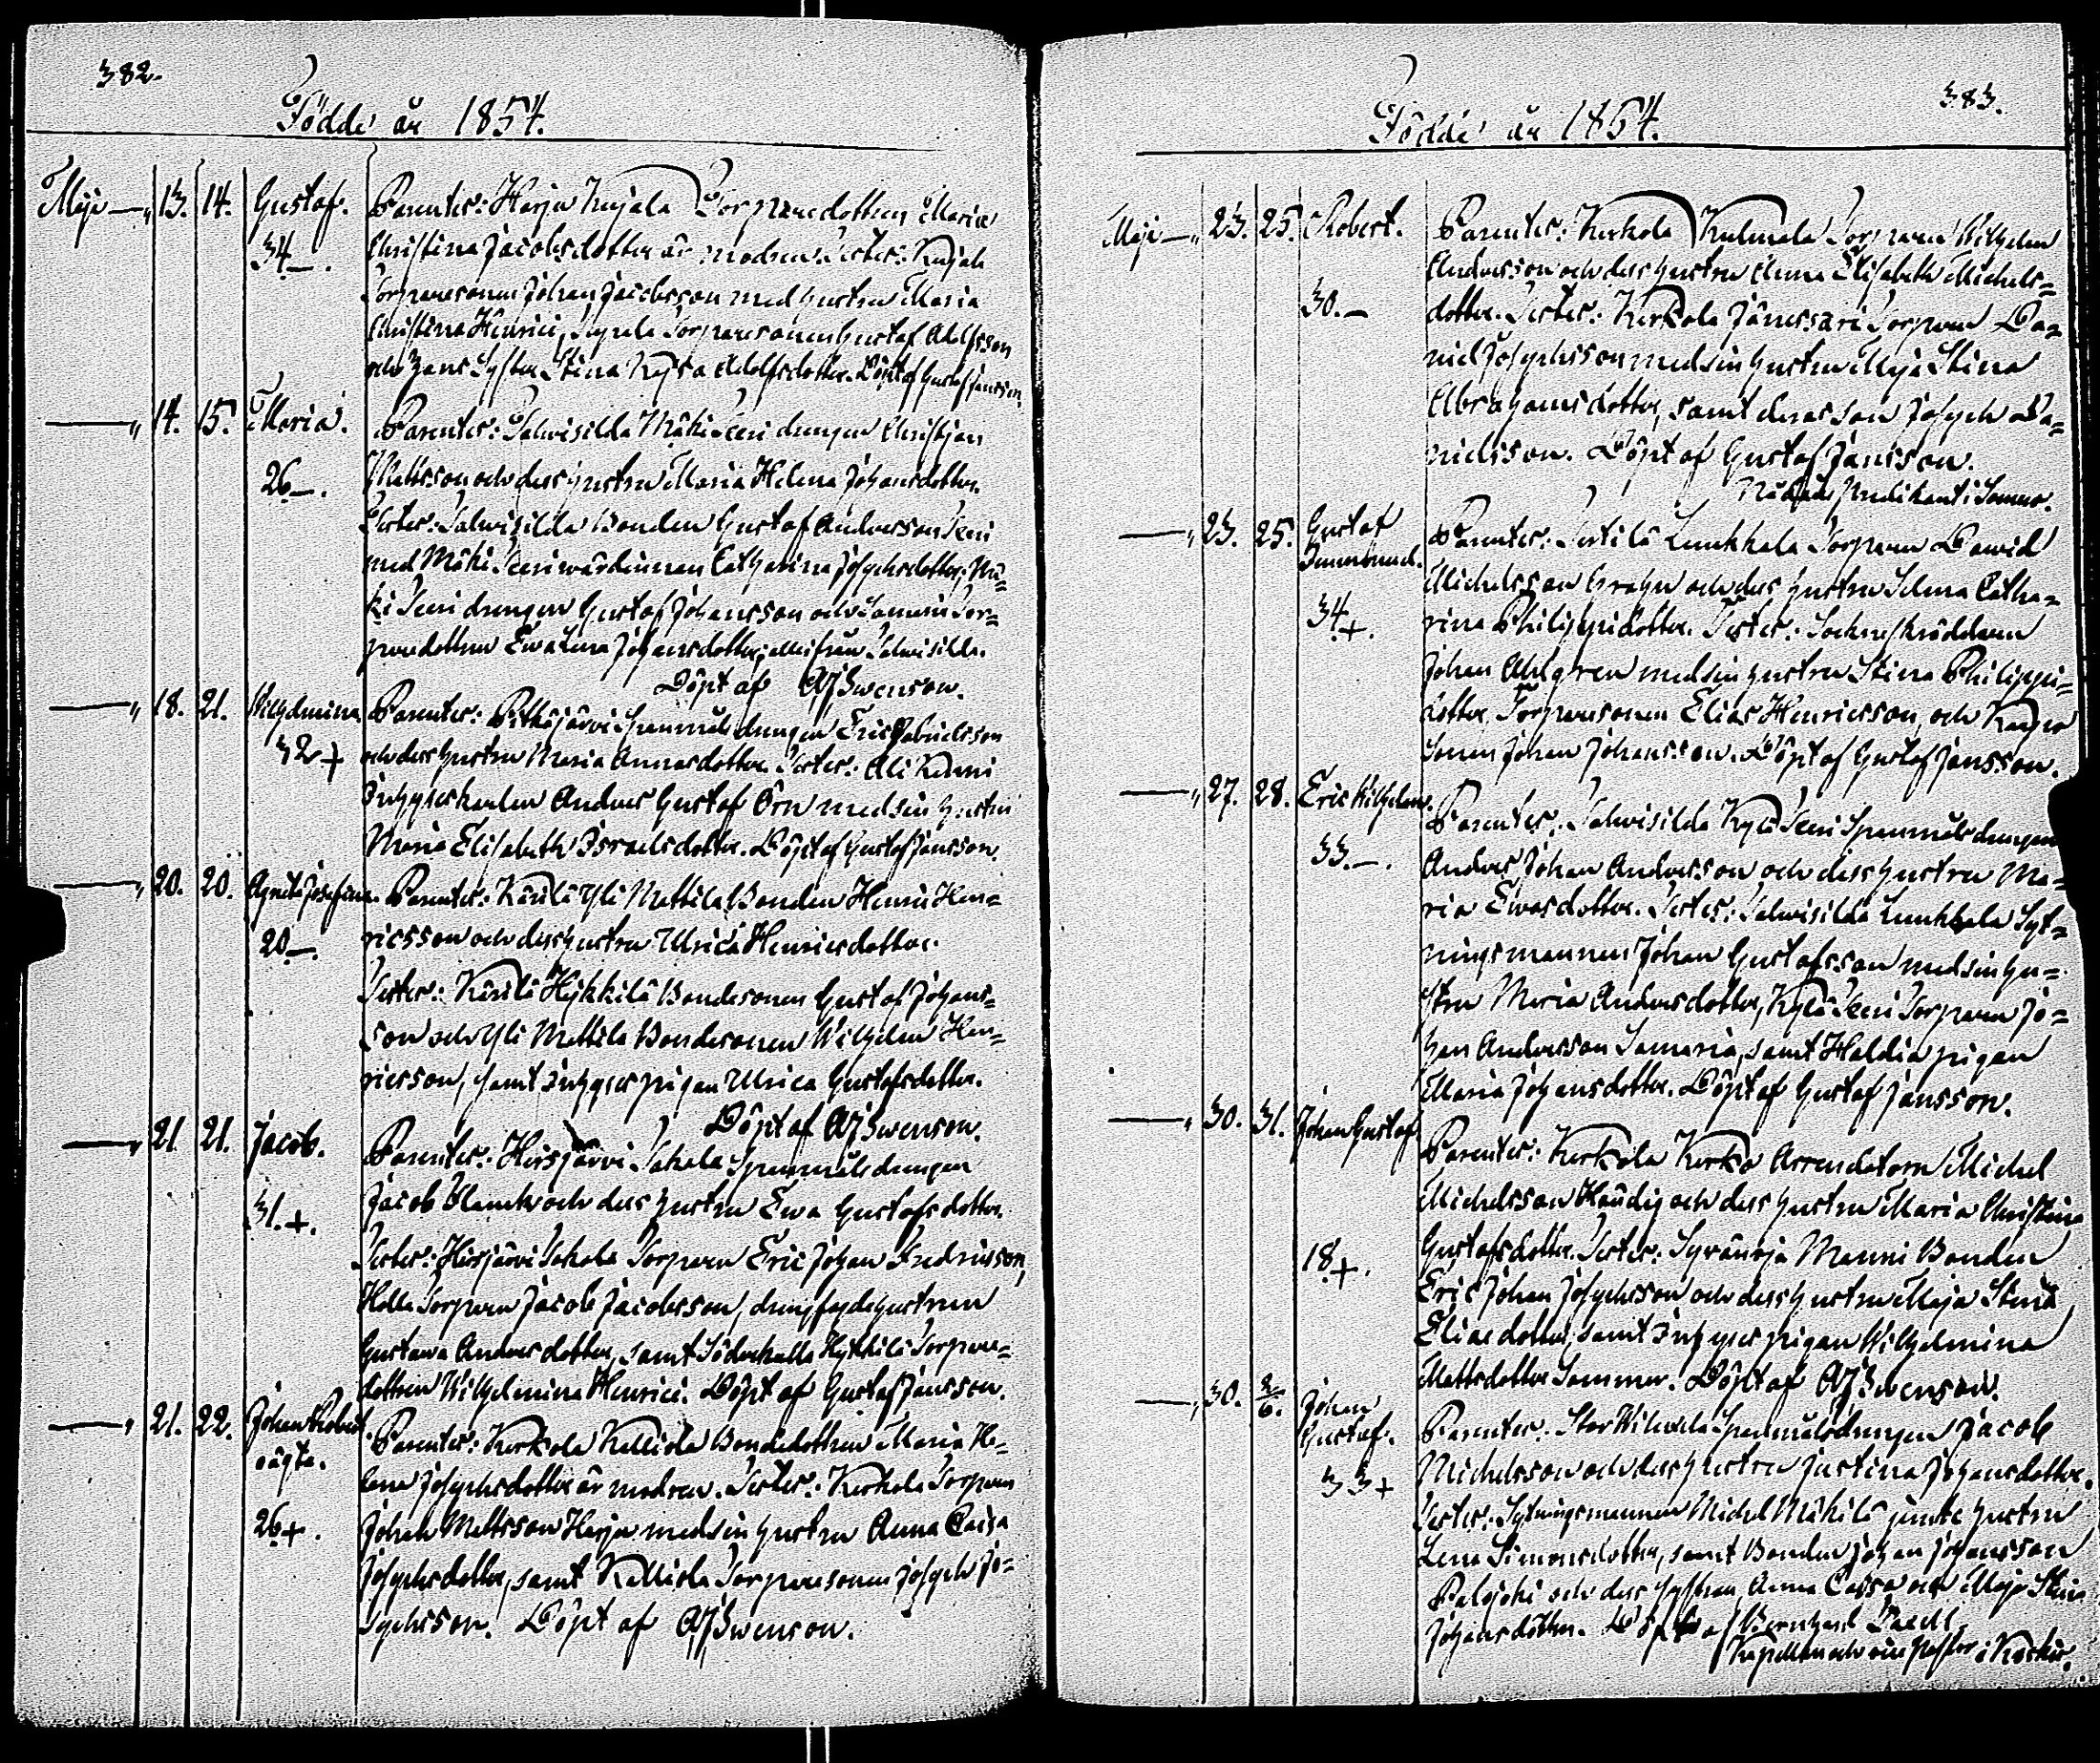 382.
Födde år 1854.
Maji — „ 13. 14. Gustaf. Parenter: Harju Kujala Torparedottren Maria
34 —. Christina Jacobsdotter är modren. Testes: Kujala
Torparesonen Johan Jacobsson med hustru Maria
Christina Henrici, Torparesonen Gustaf Adolfsson
och hans Syster Stina Kajsa Adolfsdotter. Döpt af Gustaf Jansson.
— „ 14. 15. Maria. Parenter: Salvisilda Mäki drengen Christjan
26 —. Mattsson och dess hustru Maria Helena Johansdotter.
Testes: Salwisilda Bonden Gustaf Andersson
med Mäki wärdinnan Catharina Josephsdotter, Mä=
ki drengen Gustaf Johansson och Tor=
paredottren Ewa Lena Johansdotter, alla ifrån Salwisilda.
Döpt af AJ Swenson.
— „ 18. 21. Wilhelmina Parenter: Pitkäjärvi Spanmåls drengen Eric Gabrielsson
32 + och dess hustru Maria Annasdotter. Testes: Ali
Inhyseskarlen Anders Gustaf Örn med sin hustru
Maria Elisabeth Israelsdotter. Döpt af Gustaf Jansson.
— „ 20. 20. Agneta Josefina. Parenter: Käulä Yli Mattila Bonden Henric Hen=
20 —. ricsson och dess hustru Ulrica Henricsdotter.
Testes: Hykkilä Bondesonen Gustaf Johans=
son och Yli Mattila Bondesonen Wilhelm Hen=
ricsson, samt Inhyses pigan Ulrica Gustafsdotter.
Döpt af AJ Swenson.
— „ 21. 21. Jacob. Parenter: Hirsjärvi Jakala Spanmåls drengen
31. +. Jacob och dess hustru Ewa Gustafsdotter.
Testes: Hirsjärvi Torparen Eric Johan Fredricsson,
Torparen Jacob Jacobsson, hustrun
Gustava Andersdotter, samt Hykkilä Torpare=
dottren Wilhelmina Henrici. Döpt af Gustaf Jansson.
— „ 21. 22. Johan Robert oägta. Parenter: Kerkola Kalliola Bondedottren Maria He=
lena Josephsdotter är modren. Testes: Kerkola Torparen
26 +. Johan Mattsson Harju med sin hustru Anna Caisa
Josephsdotter, samt Kalliola Torparesonen Joseph Jo=
sephsson. Döpt af AJ Swenson.
383.
Födde år 1854.
Maji — „ 23. 25. Robert. Parenter: Kerkola Kulmala Torparen Wilhelm
Andersson och dess hustru Anna Elisabeth Michels=
30. — dotter. Testes: Kerkola Jänessari Torparen Da=
niel Josephsson med sin hustru Maja Stina
Abrahamsdotter, samt deras son Joseph Da=
nielsson. Döpt af Gustaf Jansson.
Nådårs Predikant i Somero.
— „ 23. 25. Gustaf Immanuel. Parenter: Jertilä Lunkkala Torparen Dawid
Michelsson och dess hustru Selma Catha=
34 +. rina Philippidotter. Testes: Sockneskräddaren
Johan Ahlgren med sin hustru Stina Philippi=
dotter, Torparesonen Elias Henricsson, och
sonen Johan Johansson. Döpt af Gustaf Jansson.
— „ 27. 28. Eric Wilhelm. Parenter: Salwisilda Kylä Spanmåls drengen
33. —. Anders Johan Andersson och dess hustru Ma=
ria Ewasdotter. Testes: Salwisilda Lunkkala Syt=
ningsmannen Johan Gustafsson med sin hu=
stru Maria Andersdotter, Kylä Torparen Jo=
han Andersson, samt pigan
Maria Johansdotter. Döpt af Gustaf Jansson.
— „ 30. 31. Johan Gustaf Parenter: Kerkola Kerko Arrendatorn Michel
Michelsson och dess hustru Maria Christina
18 +. Gustafsdotter. Testes: Syvänoja Manni Bonden
Eric Johan Josephsson och dess hustru Maja Stina
Eliasdotter, samt Inhyses pigan Wilhelmina
Mattsdotter Sommer. Döpt af AJ Swenson.
— „ 30. 2/6. Johan Gustaf. Parenter: Spanmålsdrengen Jacob
33 + Michelsson och dess hustru Justina Johansdotter.
Testes: Sytningsmannen Michel Mäkilä jemte hustru
Lena Simonsdotter, samt Bonden Johan Johansson
Palojoki och dess systrar, Anna Caisa och Maja Stina
Johansdöttrar. Döpt af Bernhard
Kapellan och vice Pastor i Koskis.